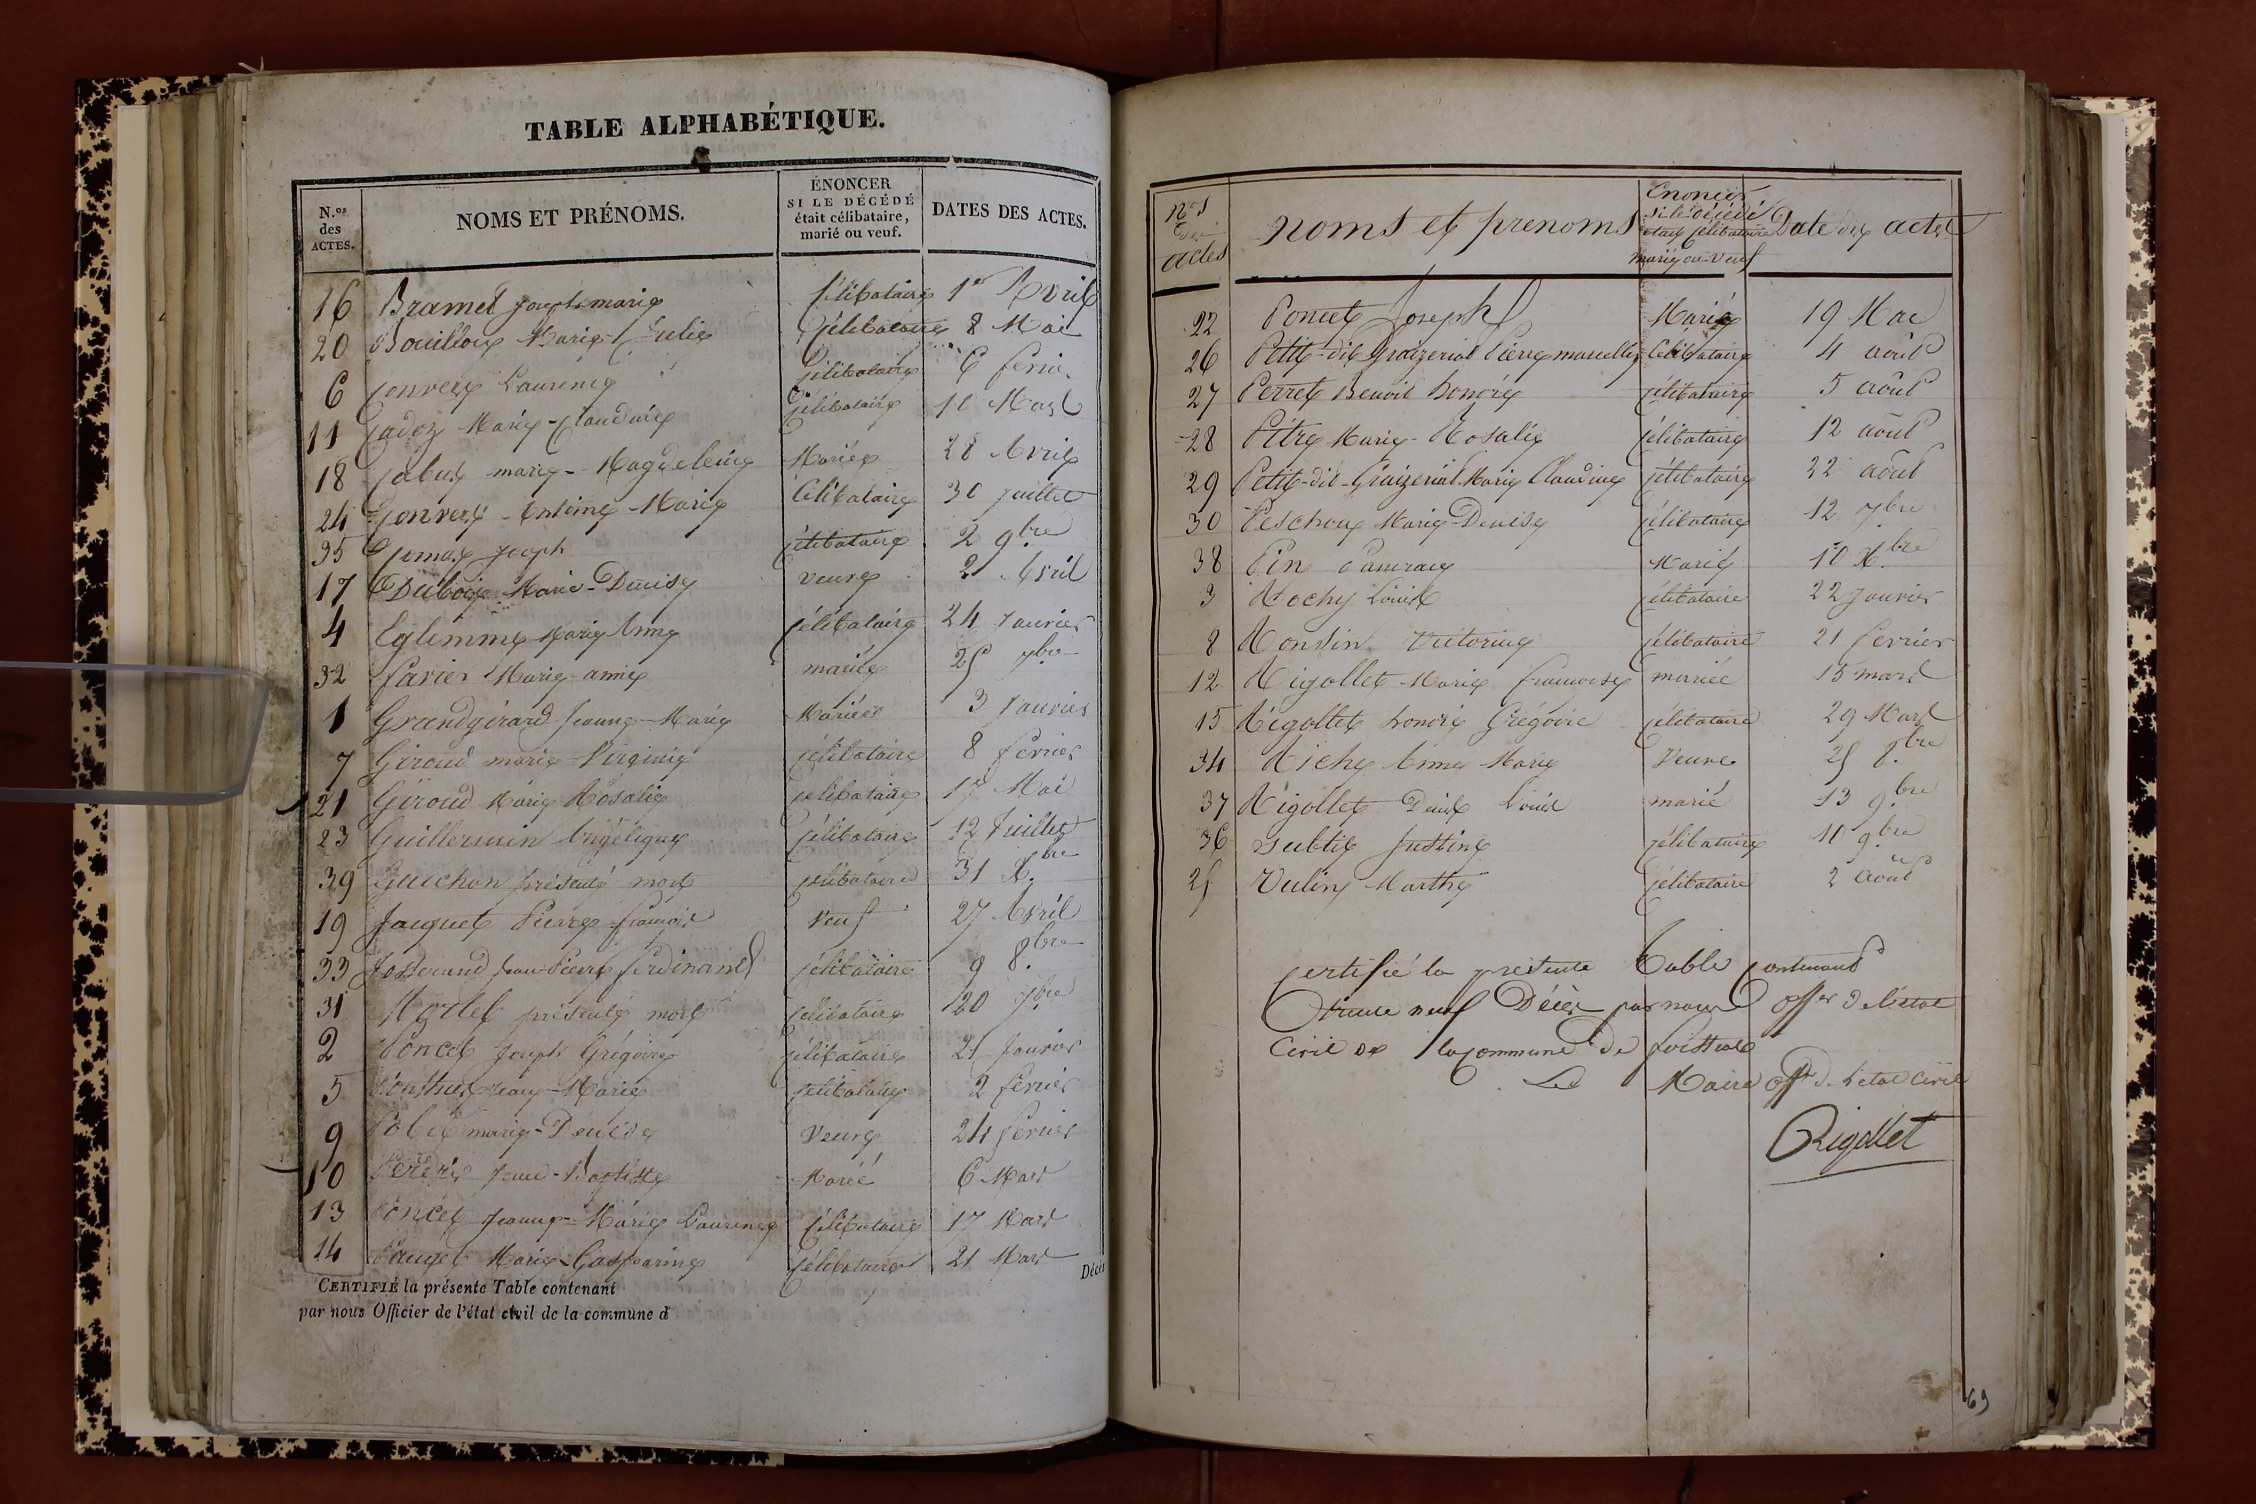 TABLE ALPHABÉTIQUE.
N.os des ACTES. NOMS ET PRÉNOMS. ÉNONCER SI LE DÉCÉDÉ était célibataire, marié ou veuf. DATES DES ACTES.
16 Bramet Joseph marie Célibataire 1er Avril
20 Bouillon Marie-Julie Célibataire 8 Mai
6 Convers Laurence Célibataire 6 fevrier
11 Cadoz Marie-Claudine Célibataire 11 Mars
18 Cabus marie-Magdeleine Mariée 28 Avril
24 Convers-Antoine-Marie Célibataire 30 Juillet
35 Comas Joseph Célibataire 2 9bre
17 Dubois Marie-Denise veuve 2 Avril
4 Eglemme Marie Anne Célibataire 24 Janvier
32 favier Marie-anne mariée 25 7bre
1 Grandgérard Jeanne-Marie Mariée 3 Janvier
7 Giroud marie-Virginie Célibataire 8 fevrier
21 Giroud Marie Rosalie Célibataire 17 Mai
23 Guillermin Angélique Célibataire 12 Juillet
39 Guichon présenté mort Célibataire 31 Xbre
19 Jacquet Pierre-françois Veuf 27 Avril
33 Josserand Jean Pierre ferdinand Célibataire 9 8bre
31 présenté mort Célibataire 20 7bre
2 Poncet Joseph Grégoire Célibataire 21 Janvier
5 Jean-Marie Célibataire 2 fevrier
9 marie-Denise Veuve 24 fevrier
10 Jean-Baptiste Marié 6 Mars
13 Poncet Jeanne-Marie Laurence Célibataire 17 Mars
14 Pauget Marie-Gasparine Célibataire 21 Mars
CERTIFIÉ la présente Table contenant Décès
par nous Officier de l'état civil de la commune d
Nos des actes noms et prenoms Enoncer si le décédé etait célibataire marié ou veuf Date des actes
22 Poncet Joseph Marié 19 Mai
26 Petit-dit Graizeriat Pierre marcellin Célibataire 4 août
27 Perret Benoit honoré Célibataire 5 août
28 Pitre Marie-Rosalie Célibataire 12 août
29 Petit-dit-Graizeriat Marie Claudine Célibataire 22 août
30 Peschoux Marie-Denise Célibataire 12 7bre
38 Pin Pancrace Marié 10 Xbre
3 Rochy Louis Célibataire 22 Janvier
8 Rondin Victorine Célibataire 21 fevrier
12 Rigollet Marie françoise mariée 15 mars
15 Rigollet honoré Grégoire Célibataire 29 Mars
34 Riche Anne Marie Veuve 25 8bre
37 Rigollet Denis Louis marié 13 9bre
36 Sublie Justine Célibataire 10 9bre
25 Vulin Marthe Célibataire 2 août
Certifié la presente Table contenant
trente neuf Décès par nous offer De l'état
Civil De la Commune De foissiat
Le Maire offer De l'état Civil
Rigollet
69